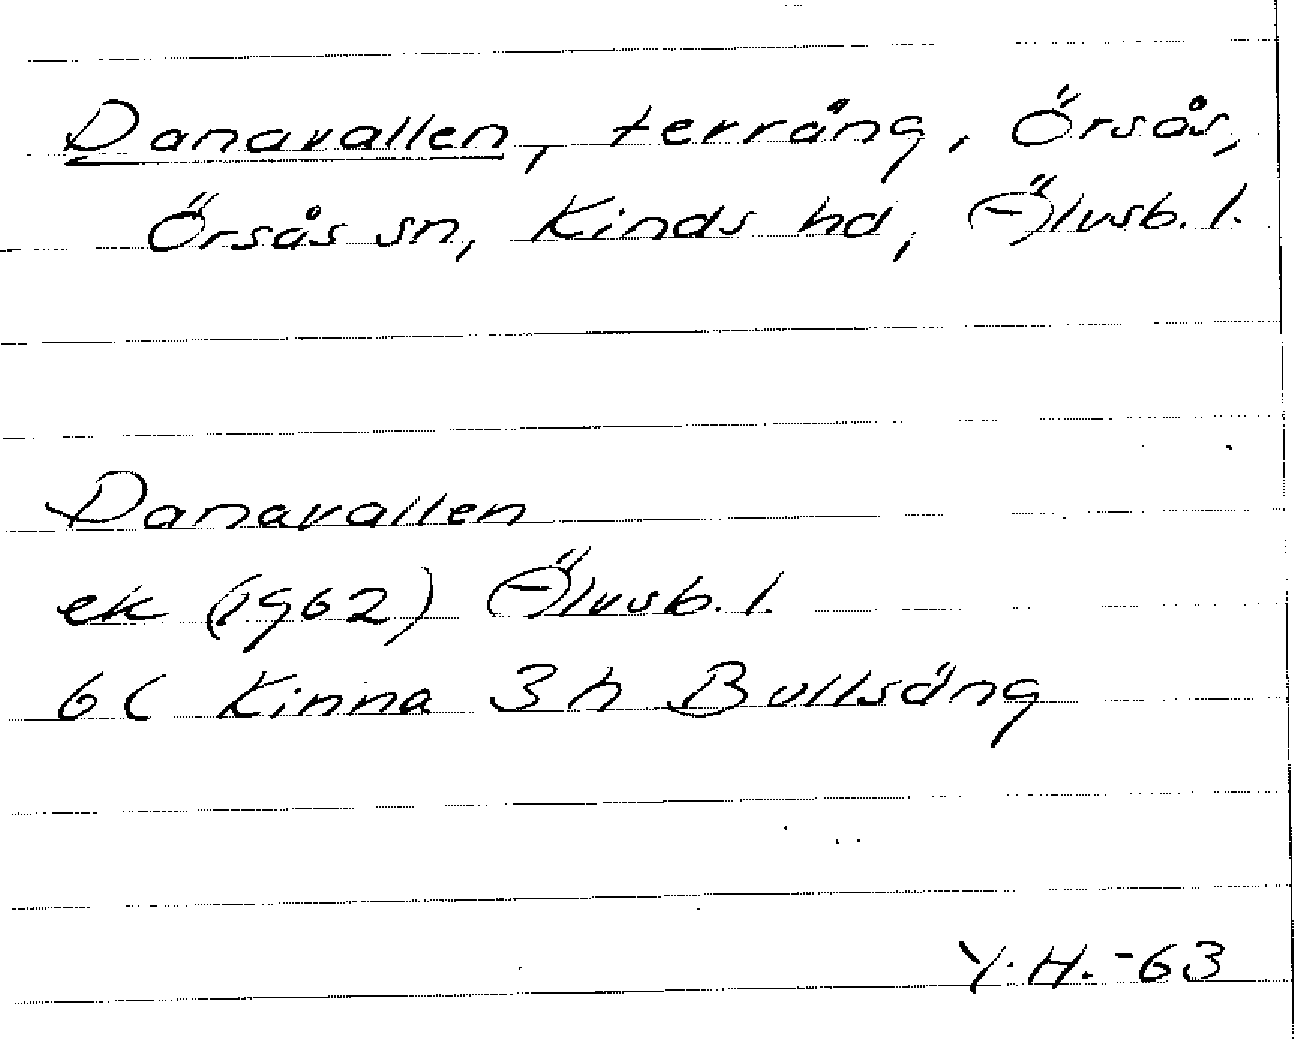 Danavallen, terräng, Örsås,
Örsås sn, Kinds hd, Älvsb. l.
Danavallen
ek (1962) Älvsb. l.
6C Kinna 3h Bullsäng
Y.H. -63